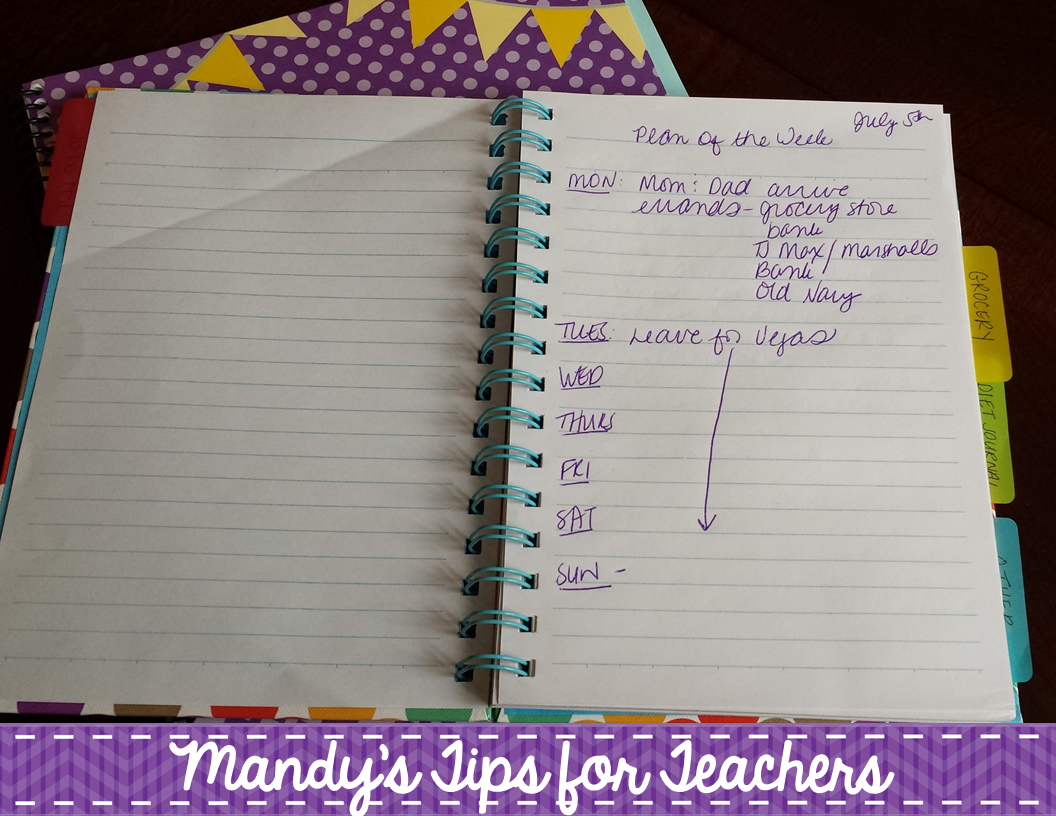 July 5th
Plan of the Week
MON: Mom : Dad arrive
errands - grocery store
bank
TJ Max / Marshalls
Bank
Old Navy
TUES: Leave for Vegas
WED
THURS
FRI
SAT
SUN -
GROCERY
DIET JOURNAL
OTHER
Mandy's Tips for Teachers